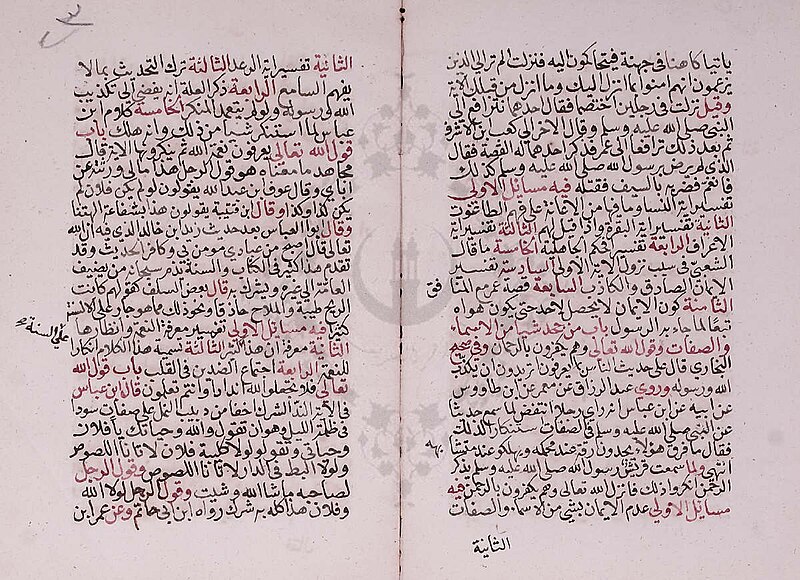 ياتيا كاهنا في جهينة فيتحاكمون اليه فنزلت الم تر الى الذين
يزعمون انهم امنوا بما انزل اليك وما انزل من قبلك الاية
وقيل نزلت في رجلين اختصما فقال احدهما نترافع الى
النبي صلى الله عليه وسلم وقال الاخر الى كعب بن الاشرف
ثم بعد ذلك ترافعا الى عمر فذكر احدهما له القصة فقال
الذي لم يرض برسول الله صلى الله عليه وسلم كذلك
قال نعم فضربه بالسيف فقتله فيه مسائل الاولى
تفسير اية النساء وما فيها من الاعانة على فهم الطاغوت
الثانية تفسير اية البقرة واذا قيل لهم الثالثة تفسير اية
الاعراف الرابعة تفسير افحكم الجاهلية الخامسة ما قال
الشعبي في سبب نزول الاية الاولى السادسة تفسير
الايمان الصادق والكاذب السابعة قصة عمر مع المنافق
الثامنة كون الايمان لا يحصل لاحد حتى يكون هواه
تبعا لما جاء به الرسول باب من جحد شيئا من الاسماء
والصفات وقول الله تعالى وهم يكفرون بالرحمن وفي صحيح
البخاري قال علي حدثوا الناس بما يعرفون اتريدون ان يكذب
الله ورسوله وروى عبد الرزاق عن معمر عن ابن طاووس
عن ابيه عن ابن عباس انه راى رجلا انتفض لما سمع حديثا
عن النبي صلى الله عليه وسلم في الصفات استنكارا لذلك
فقال ما فرق هؤلاء يجدون رقة عند محكمه ويهلكون عند متشابهه
انتهى ولما سمعت قريش رسول الله صلى الله عليه وسلم يذكر
الرحمن انكروا ذلك فانزل الله تعالى وهم يكفرون بالرحمن فيه
مسائل الاولى عدم الايمان بشي من الاسماء والصفات
الثانية
الثانية تفسير اية الرعد الثالثة ترك التحديث بما لا
يفهم السامع الرابعة ذكر العلة انه يفضي الى تكذيب
الله ورسوله ولو لم يتعمد المنكر الخامسة كلام ابن
عباس لما استنكر شيا من ذلك وانه هلك باب
قول الله تعالى يعرفون نعمة الله ثم ينكرونها الاية قال
مجاهد ما معناه هو قول الرجل هذا مالي ورثته عن
اباي وقال عوف ابن عبد الله يقولون لولا فلان لم
يكن كذا وكذا وقال ابن قتيبة يقولون هذا بشفاعة الهتنا
وقال ابوا العباس بعد حديث زيد ابن خالد الذي فيه ان الله
تعالى قال اصبح من عبادي مومن بي وكافر الحديث وقد
تقدم هذا كثير في الكتاب والسنة يذم سبحانه من يضيف
انعامه الى غيره ويشرك به قال بعض السلف هو قولهم كانت
الريح طيبة والملاح حاذقا ونحو ذلك مما هو جار على السنة
كثير فيه مسائل الاولى تفسير معرفة النعمة وانكارها
الثانية معرفة ان هذا كثير الثالثة تسمية هذا الكلام انكارا
للنعمة الرابعة اجتماع الضدين في القلب باب قول الله
تعالى فلا تجعلوا لله اندادا وانتم تعلمون قال ابن عباس
في الاية الانداد الشرك اخفا من دبيب النمل على صفات سودا
في ظلمة الليل وهو ان تقول والله وحياتك يا فلان
وحياتي وتقول لولا كليبة فلان لاتانا اللصوص
ولولا البط في الدار لاتانا اللصوص وقول الرجل
لصاحبه ما شا الله وشيت وقول الرجل لولا الله
وفلان هذا كله به شرك رواه ابن ابي حاتم وعن عمر ابن
على السنة